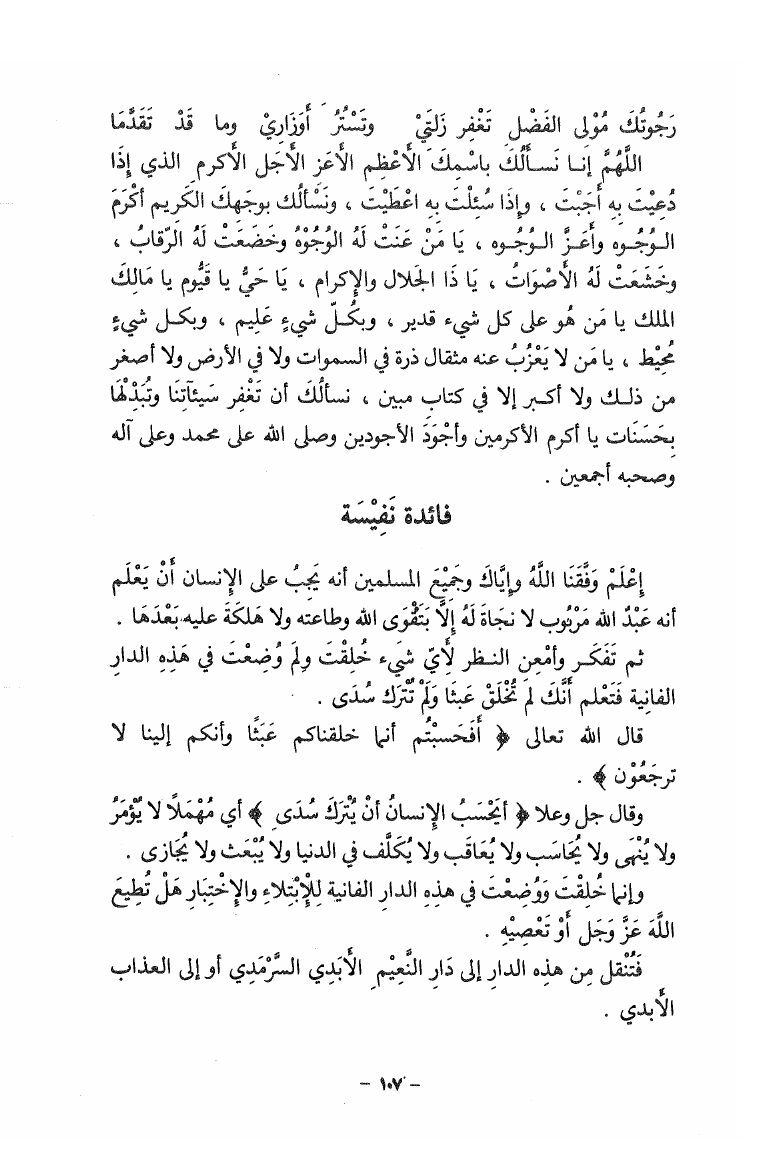 رَجُوتُكَ مُوْلى الفَضْلِ تَغْفِر زَلَتيْ وتَسْتُرُ أَوْزَارِيْ وما قَدْ تَقَدَّمَا
اللَّهُمَّ إنـا نَسـأَلُكَ باسْمِكَ الأَعْظَمِ الأَعَزِ الأَجَلِ الأَكرمِ الذي إِذَا
دُعِيْتَ بِهِ أَجَبْتَ ، وإِذَا سُئِلْتَ بِهِ اعْطَيْتَ ، ونَسْأَلُك بوجهِكَ الكَرِيم أكْرَمَ
الـوُجُـوه وأَعَـزَّ الـوُجُـوه ، يَا مَنْ عَنَتْ لَهُ الوُجُوْهُ وخَضَعَتْ لَهُ الرِّقابُ ،
وخَشَعَتْ لَهُ الأصْوَاتُ ، يَا ذَا الجَلال والإِكرام ، يَا حَيُّ يا قَيُّوم يا مَالِكَ
الملك يا مَن هُو على كل شيء قدير ، وبكُـلِّ شيءٍ عَلِيم ، وبكـل شيءٍ
مُحِيْط ، يا مَن لا يَعْزُبُ عنه مثقال ذرة في السموات ولا في الأرض ولا أصغر
من ذلـك ولا أكـبر إلا في كتاب مبين ، نسألُكَ أن تَغْفِر سَيئآتِنَا وتُبَدِّلْهَا
بِحَسَنَات يا أكرم الأكرمين وأجْوَدَ الأجودين وصلى الله على محمد وعلى آله
وصحبه أجمعين .
فائدة نَفِيْسَة
إعْلَمْ وَفَّقَنَا اللَّهُ وإِيَّاكَ وجَمِيْعَ المسلمين أنه يَجِبُ على الإنسان أَنْ يَعْلَم
أنه عَبْدُ الله مَرْبُوب لا نجَاةَ لَهُ إلَّا بِتَقْوَى الله وطاعته ولا هَلكَةَ عليه بَعْدَهَا .
ثم تَفَكَـر وأمْعِن النـظر لِأَيّ شيء خُلِقْتَ ولِمَ وُضِعْتَ في هَذِهِ الدار
الفانِيَة فَتَعْلم أنَّكَ لم تُخْلَقْ عَبثَا وَلَمْ تُتْرَك سُدَى .
قال الله تعالى ﴿ أَفَحَسبْتُم أنما خلقناكم عَبَثًا وأنكم إلينا لا
ترجَعُوْن ﴾ .
وقال جل وعلا ﴿ أيَحْسَبُ الإِنسانُ أَنْ يُتْرَكَ سُدَى ﴾ أي مُهْمَلًا لا يُؤْمَرُ
ولا يُنْهَى ولا يُحَاسَب ولا يُعَاقَب ولا يُكَلَّف في الدنيا ولا يُبْعَث ولا يُجَازى .
وإنما خُلِقْتَ وَوُضِعْتَ في هذِهِ الدار الفانية لِلْإِبْتِلاءِ والإِخْتِبَارِ هَلْ تُطِيعَ
اللَّهَ عَزَّ وَجَل أوْ تَعْصِيْهِ .
فَتُنْقل مِن هذه الدار إلى دَارِ النَّعِيْمِ الأَبَدِي السَّرْمَدِي أو إلى العذاب
الأبدي .
- ١٠٧ -